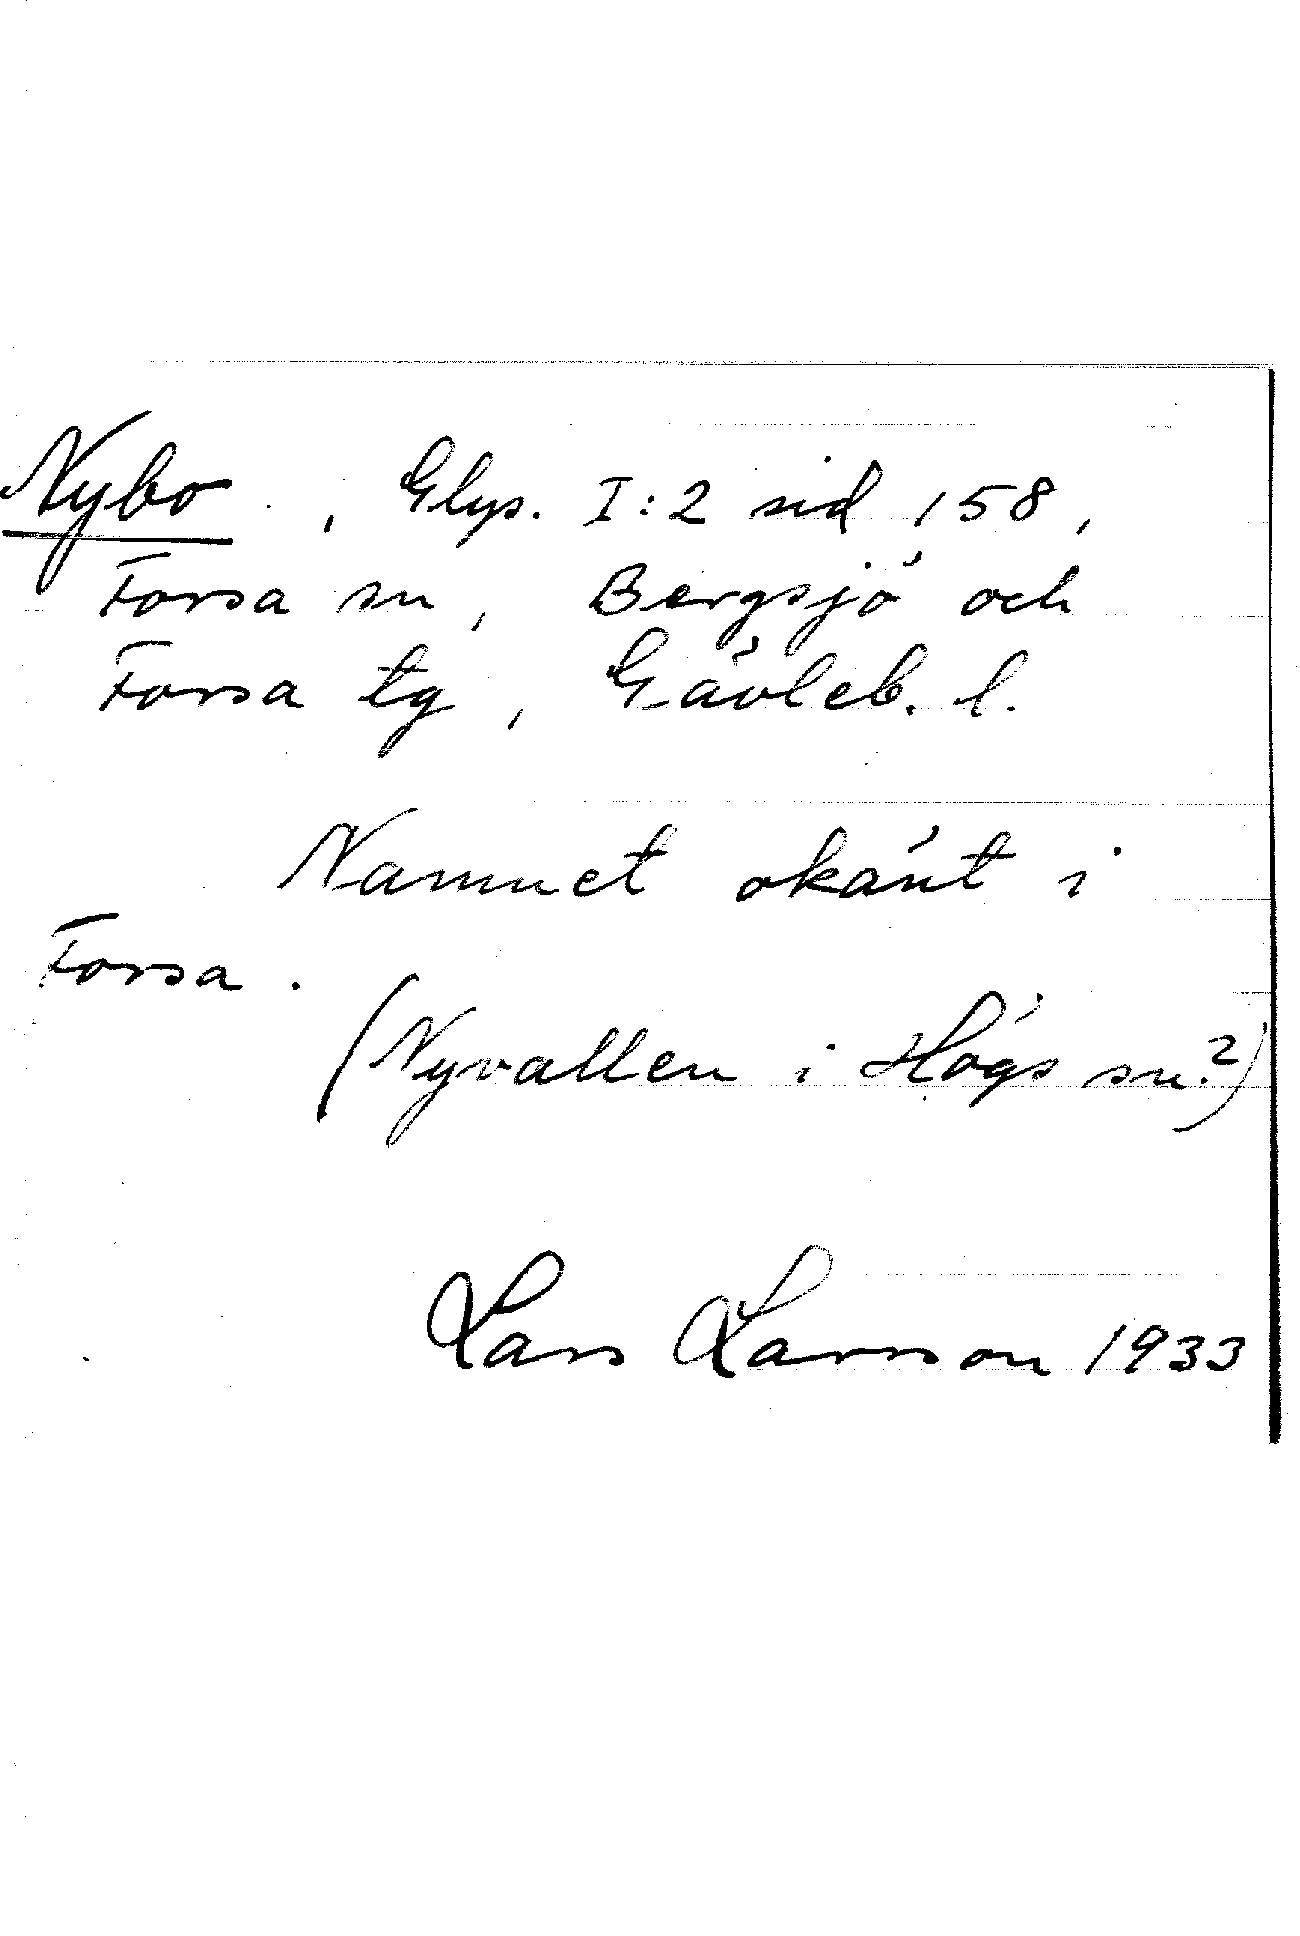 Nybo, Glys. I:2 sid 158,
Forsa sn, Bergsjö och
Forsa tg, Gävleb. l.
Namnet okänt i
Forsa.
(Nyvallen i Högs sn.?)
Lars Larsson 1933